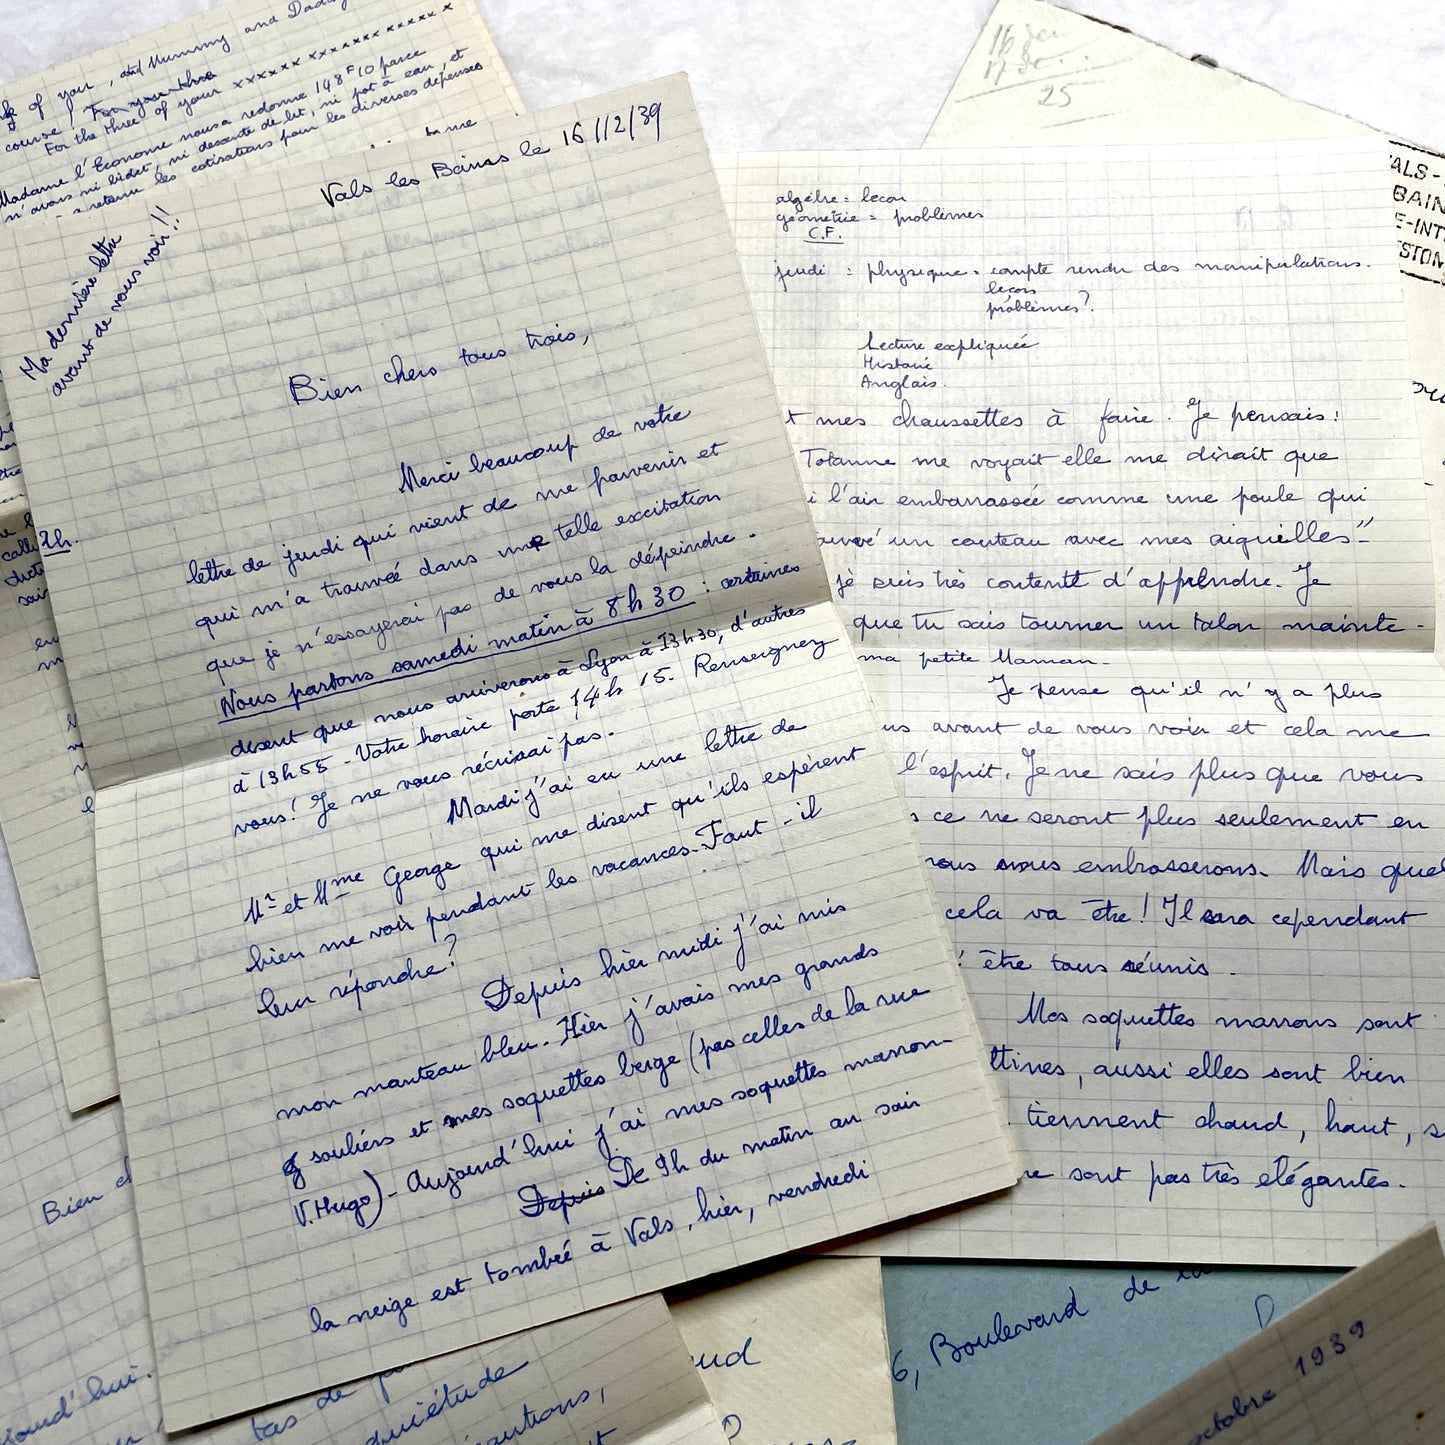 of your, and Mummy and Daddy
course, For you three
For the three of your xxxxxx xxxxxxxxxxxx x
Madame l'Econome nous a redonné 148F10 parce
n'avons ni bidet, ni descente de lit, ni pot à eau, et
a retenu les cotisations pour les diverses dépenses
Vals les Bains le 16/12/39
Ma dernière lettre
avant de vous voir!!
Bien chers tous trois,
2h.
Merci beaucoup de votre
lettre de jeudi qui vient de me parvenir et
qui m'a trouvée dans une telle excitation
que je n'essayerai pas de vous la dépeindre.
Nous partons samedi matin à 8h30 : certaines
disent que nous arriverons à Lyon à 13h30, d'autres
à 13h55 - Votre horaire porte 14h15. Renseignez
vous! Je ne vous récrirai pas.
Mardi j'ai eu une lettre de
Mr et Mme George qui me disent qu'ils espèrent
bien me voir pendant les vacances. Faut-il
leur répondre?
Depuis hier midi j'ai mis
mon manteau bleu. Hier j'avais mes grands
souliers et mes soquettes beige (pas celles de la rue
V. Hugo) - Aujourd'hui j'ai mes soquettes marron-
Depuis De 9h du matin au soir
la neige est tombée à Vals, hier, vendredi
16
17
25
ALS-
BAIN
E-INT
STON
algèbre = leçon
géométrie = problèmes
C.F.
jeudi : physique. compte rendu des manipulations.
leçon
problèmes?
Lecture expliquée
Histoire
Anglais.
t mes chaussettes à faire. Je pensais:
Totanne me voyait elle me dirait que
i l'air embarrassée comme une poule qui
ouvé un couteau avec mes aiguilles"
je suis très contente d'apprendre. Je
que tu sais tourner un talon mainte-
ma petite Maman-
Je pense qu'il n'y a plus
us avant de vous voir et cela me
l'esprit. Je ne sais plus que vous
s ce ne seront plus seulement en
nous nous embrasserons. Mais quel
cela va être! Il sera cependant
! être tous réunis.
Mes soquettes marrons sont
ttines, aussi elles sont bien
tiennent chaud, haut, s
ne sont pas très élégantes.
Bien ch
jourd'hui.
tas de p
quiétude
autions,
ud
6, Boulevard de la
octobre 1939